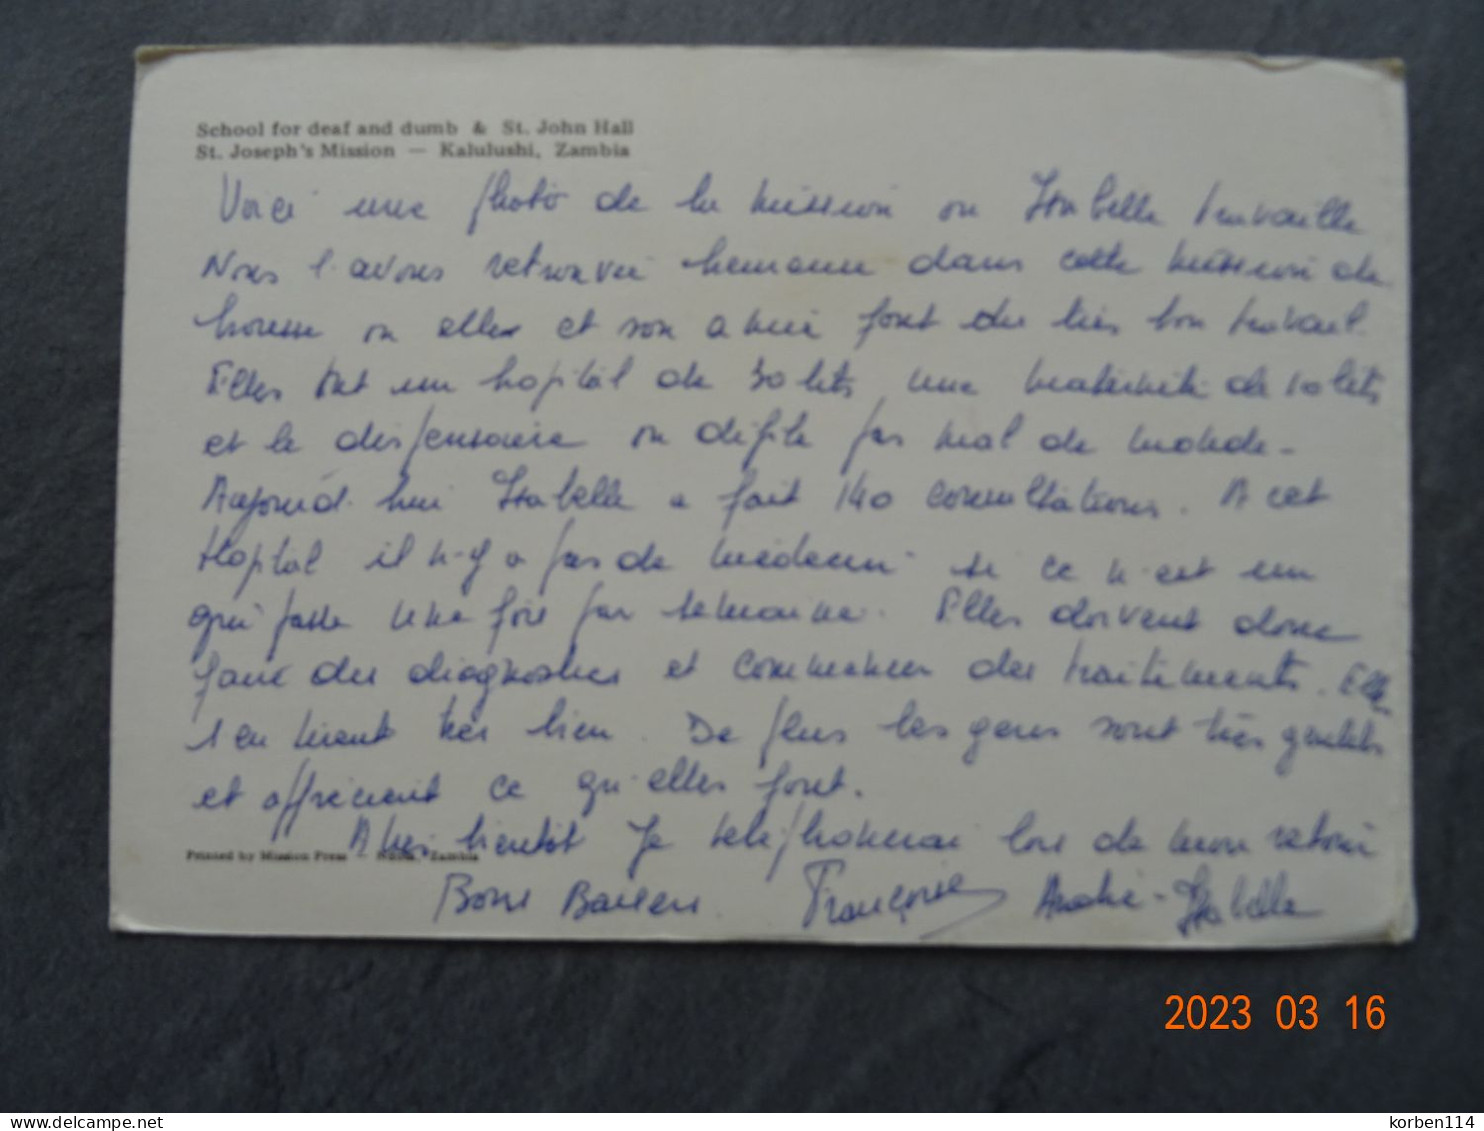 School for deaf and dumb & St. John Hall
St. Joseph's Mission — Kalulushi, Zambia
Voici une photo de la mission ou Isabelle travaille
Nous l'avons retrouvée hier dans cette mission de
brousse ou elles et son amie font du très bon travail.
Elles ont un hopital de 30 lits, une maternité de 10 lits
et le dispensaire ou défile pas mal de monde -
Aujourd'hui Isabelle a fait 140 consultations. A cet
Hopital il n-y a pas de médecin si ce n'est un
qui passe une fois par semaine. Elles doivent donc
faire des diagnostics et commencer des traitements. Elles
s'en tirent très bien. De plus les gens sont très gentils
et apprécient ce qu'elles font.
A très bientôt Je téléphonerai lors de mon retour
Printed by Mission Press Ndola, Zambia
Bons Baisers Françoise André - Isabelle
2023 03 16
korben114